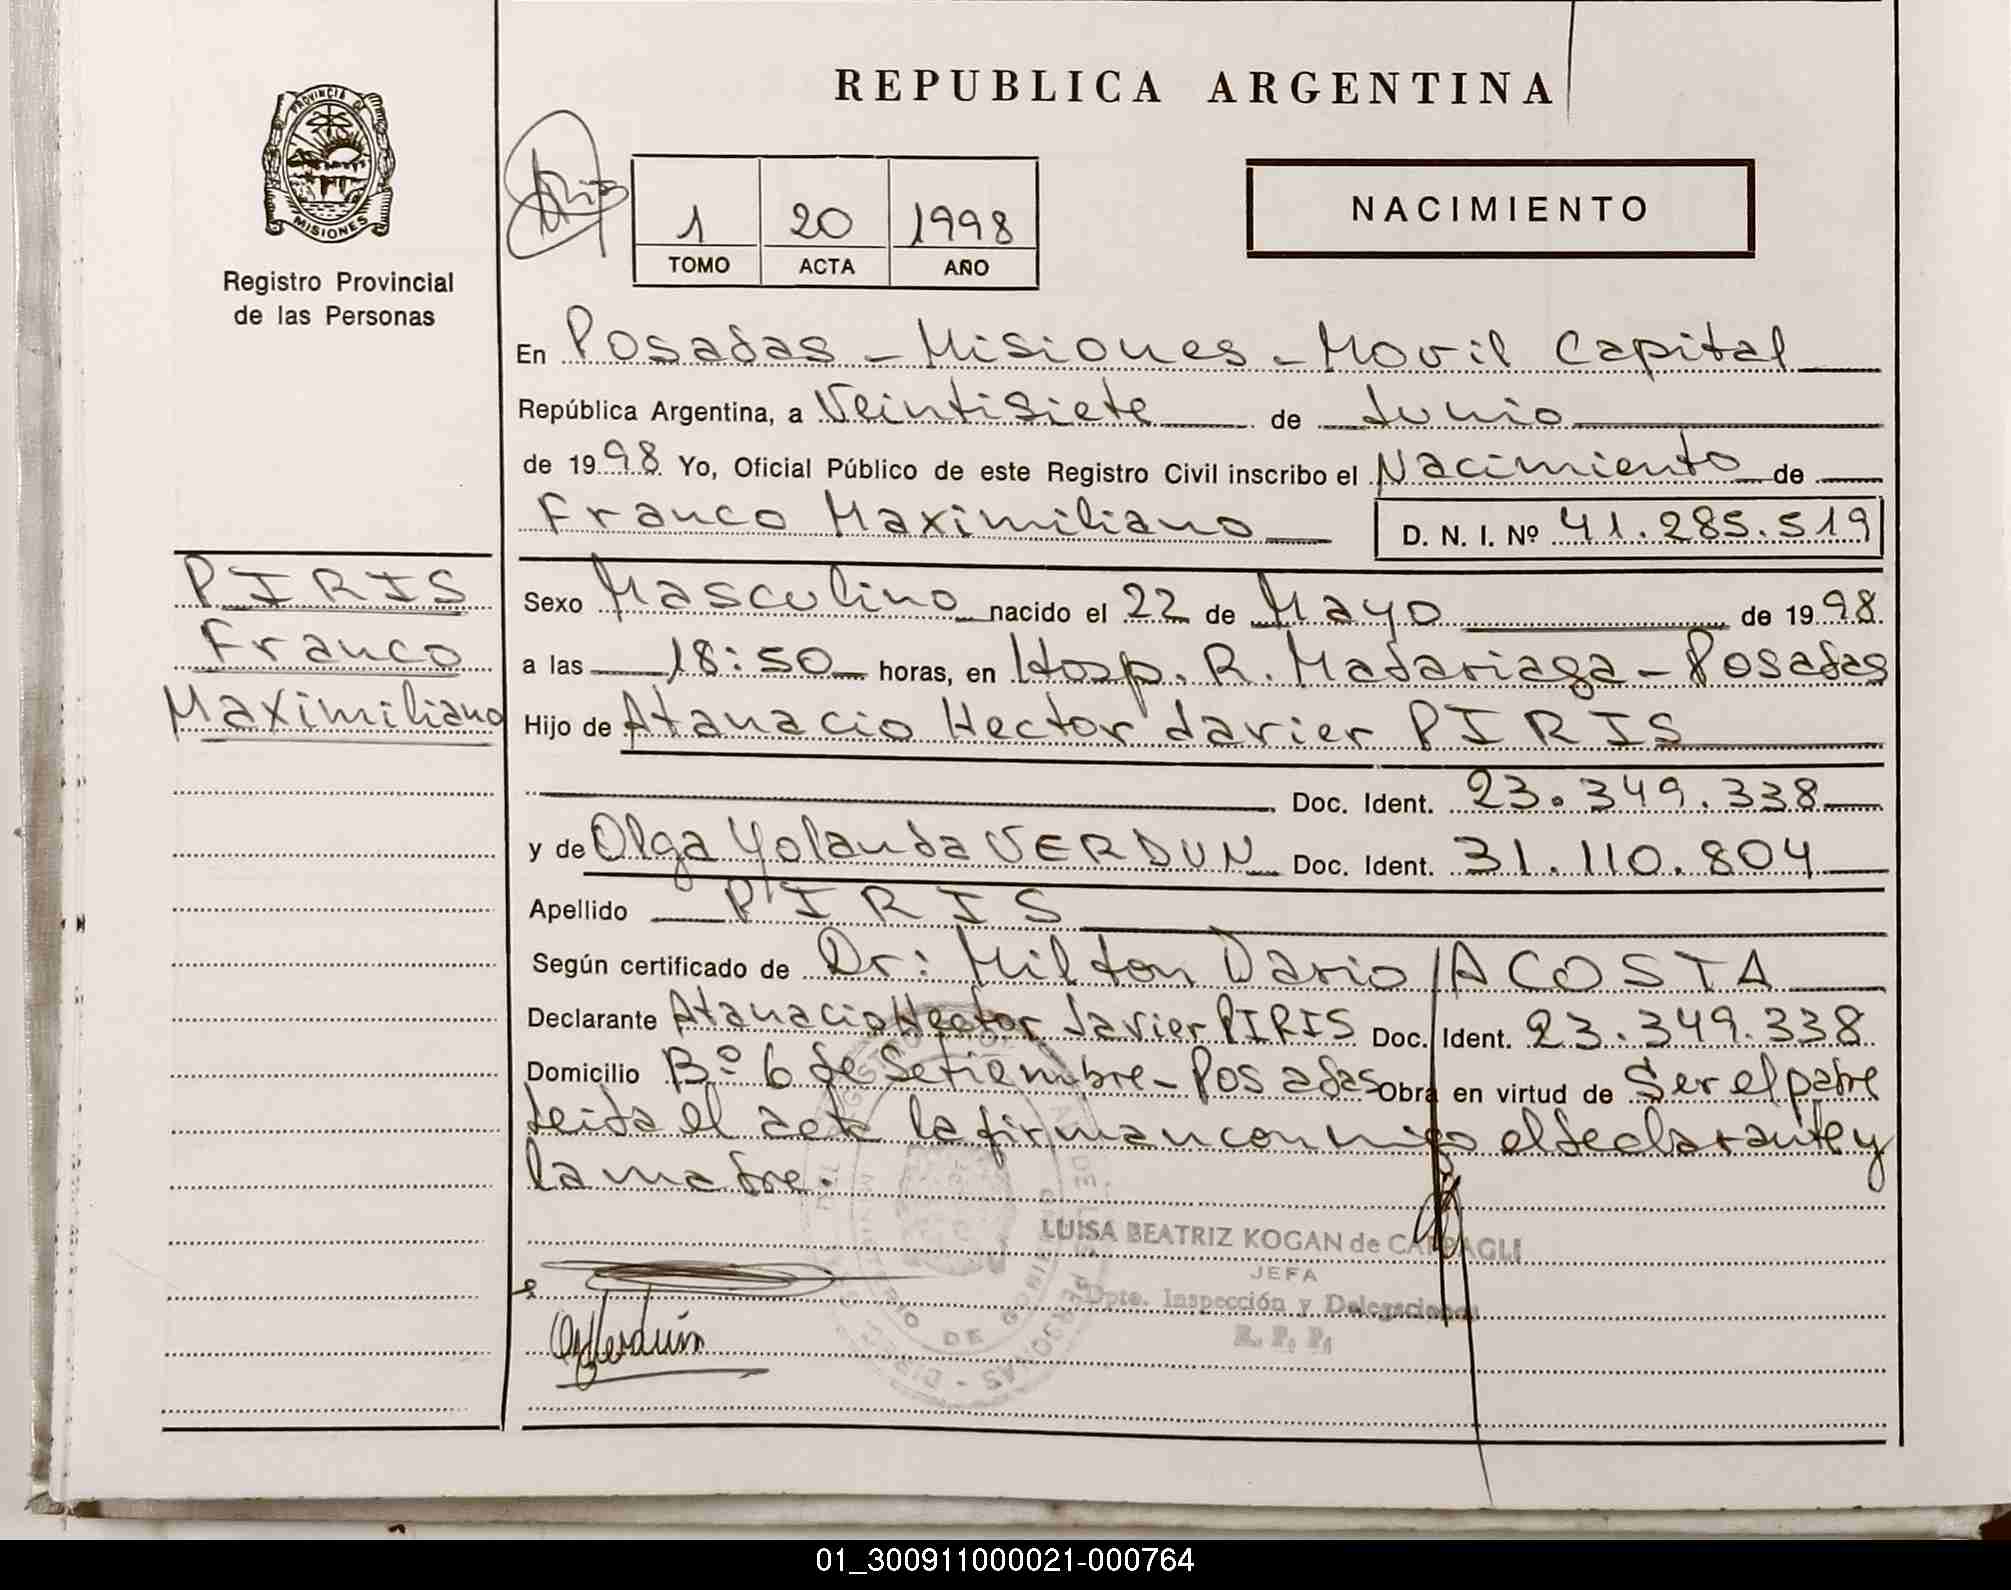 REPUBLICA ARGENTINA
PROVINCIA DE
MISIONES
Registro Provincial
de las Personas
1 20 1998
TOMO ACTA AÑO
NACIMIENTO
En Posadas - Misiones - Movil Capital
República Argentina, a Veintisiete de Junio
de 1998 Yo, Oficial Público de este Registro Civil inscribo el Nacimiento de
Franco Maximiliano D. N. I. Nº 41.285.519
PIRIS
Franco
Maximiliano
Sexo Masculino nacido el 22 de Mayo de 1998
a las 18:50 horas, en Hosp. R. Madariaga - Posadas
Hijo de Atanacio Hector Javier PIRIS
Doc. Ident. 23.349.338
y de Olga Yolanda VERDUN Doc. Ident. 31.110.804
Apellido PIRIS
Según certificado de Dr: Milton Dario ACOSTA
Declarante Atanacio Hector Javier PIRIS Doc. Ident. 23.349.338
Domicilio Bº 6 de Setiembre - Posadas Obra en virtud de Ser el padre
leida el acta la firman conmigo el declarante y
la madre.
LUISA BEATRIZ KOGAN de CAPPAGLI
JEFA
Dpto. Inspección y Delegaciones
R. P. P.
OyVerdún
01_300911000021-000764